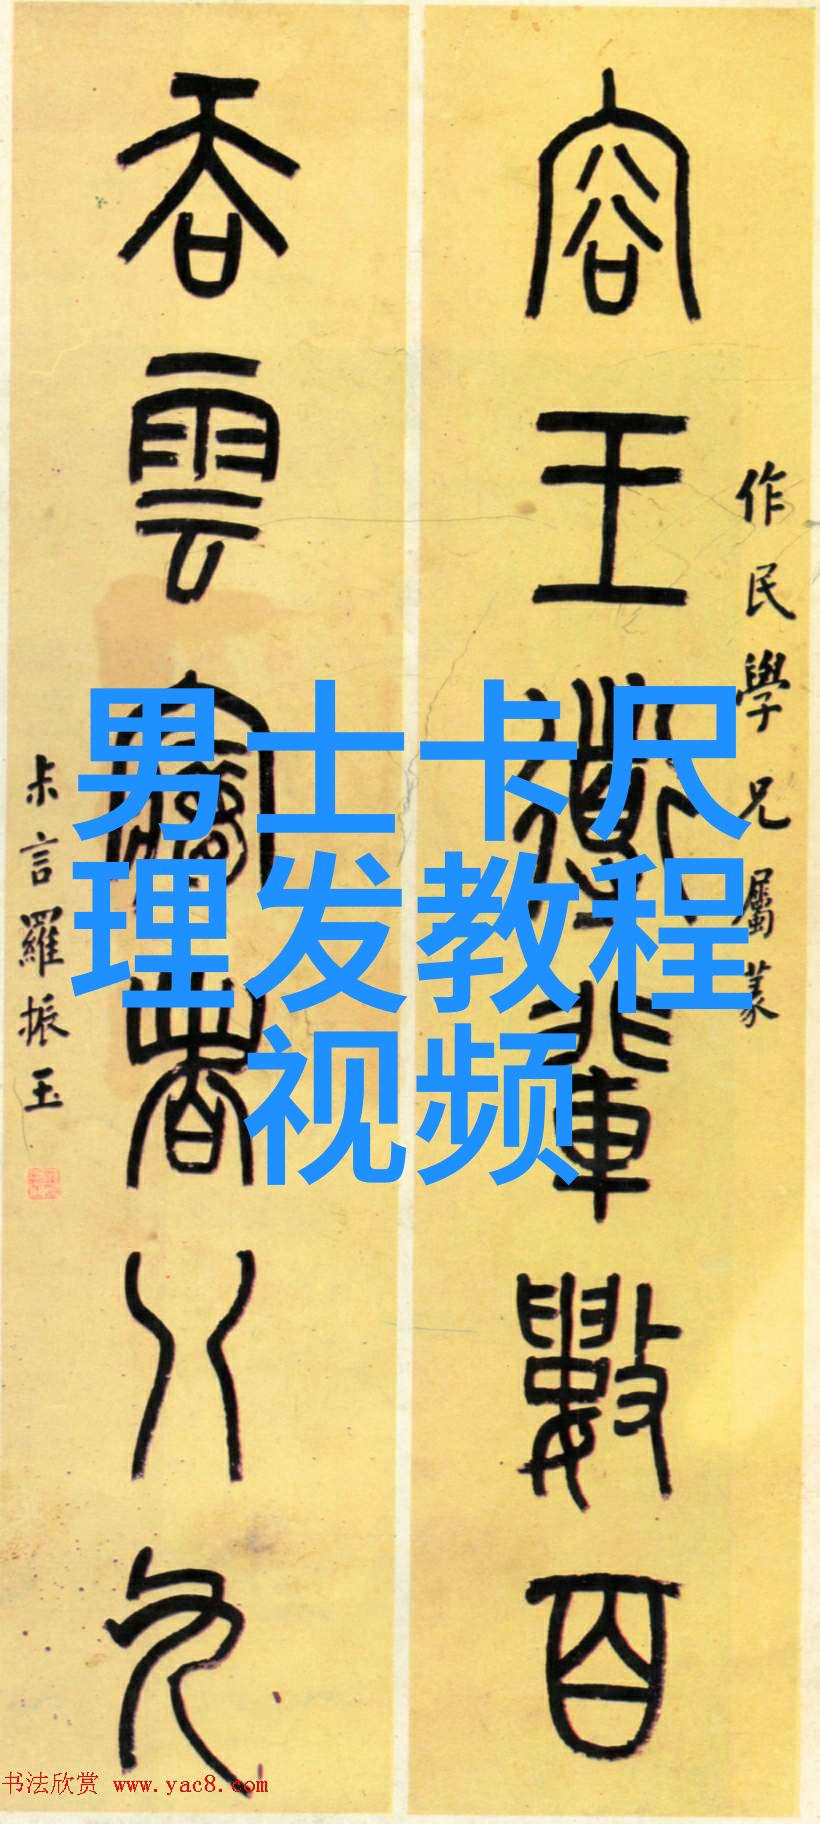 容王導輩數百
作民學兄屬篆
吞雲夢者八九
尗言羅振玉
男士卡尺
理发教程
视频
书法欣赏 www.yac8.com